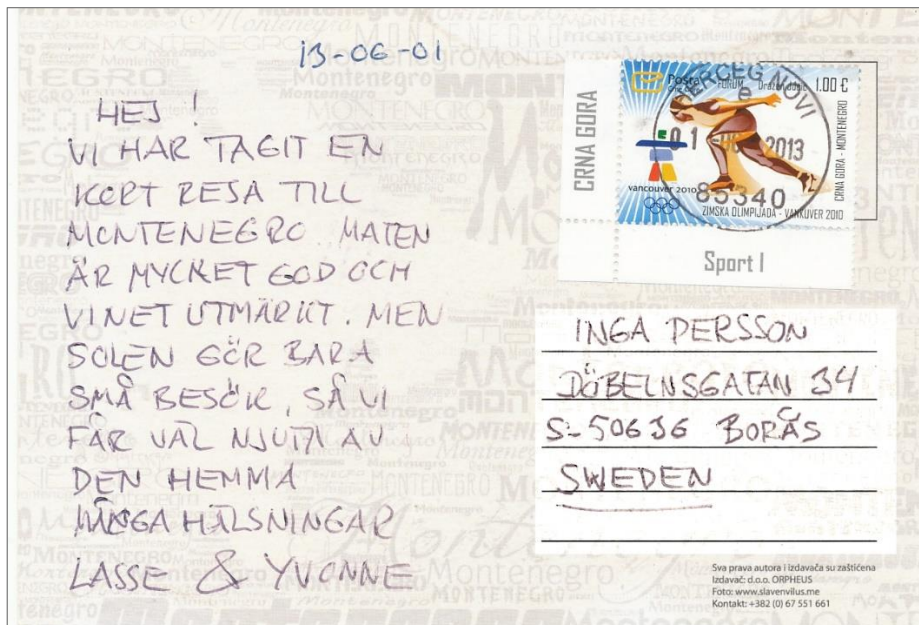 13-06-01
HEJ!
VI HAR TAGIT EN
KORT RESA TILL
MONTENEGRO. MATEN
ÄR MYCKET GOD OCH
VINET UTMÄRKT. MEN
SOLEN GÖR BARA
SMÅ BESÖK, SÅ VI
FÅR VÄL NJUTA AV
DEN HEMMA
MÅNGA HÄLSNINGAR
LASSE & YVONNE
CRNA GORA
Posta
Crne Gore
FORUM
1.00 €
HERCEG NOVI
2013
85340
vancouver 2010
ZIMSKA OLIMPIJADA - VANKUVER 2010
CRNA GORA - MONTENEGRO
Sport I
INGA PERSSON
DÖBELNSGATAN 34
S-50636 BORÅS
SWEDEN
Sva prava autora i izdavača su zaštićena
Izdavač: d.o.o. ORPHEUS
Foto: www.slavenvilus.me
Kontakt: +382 (0) 67 551 661